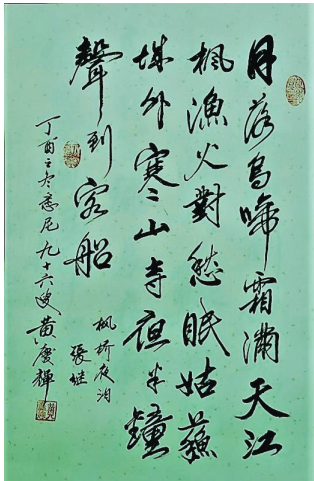 月落烏啼霜滿天江
楓漁火對愁眠姑蘇
城外寒山寺夜半鐘
聲到客船
楓桥夜泊
張继
丁酉之冬悉尼九十六叟黄慶輝